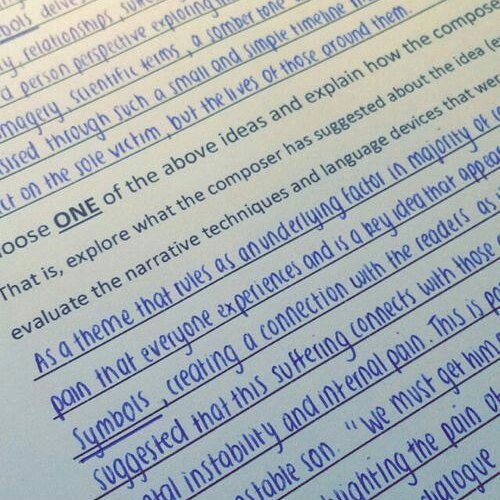 bols delves
relationships, suff
d person perspective exploring
imagery, scientific terms, a somber tone
sised through such a small and simple timeline
ct on the sole victim, but the lives of those around them.
oose ONE of the above ideas and explain how the compose
That is, explore what the composer has suggested about the idea
evaluate the narrative techniques and language devices that we
As a theme that rules as an underlying factor in majority of
pain that everyone experiences and is a key idea that appea
Symbols, creating a connection with the readers as
suggested that this suffering connects with those
tal instability and internal pain. This is
stable son. "We must get him
lighting the pain
alogue